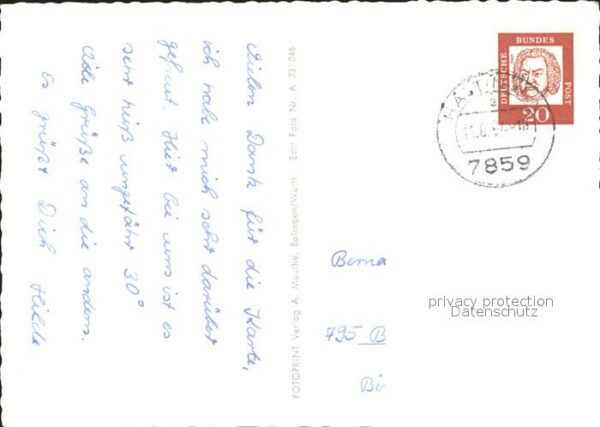 Vielen Dank für die Karte,
ich habe mich sehr darüber
gefreut. Hier bei uns ist es
sehr heiß ungefähr 30°
Viele Grüße an die andern.
Es grüßt Dich Hilde
FOTOPRINT Verlag A. Mauthe, Balingen/Württ. Echt Foto Nr. A 33 046
DEUTSCHE
BUNDES
POST
20
7859
Berna
795 B
Bi
privacy protection
Datenschutz